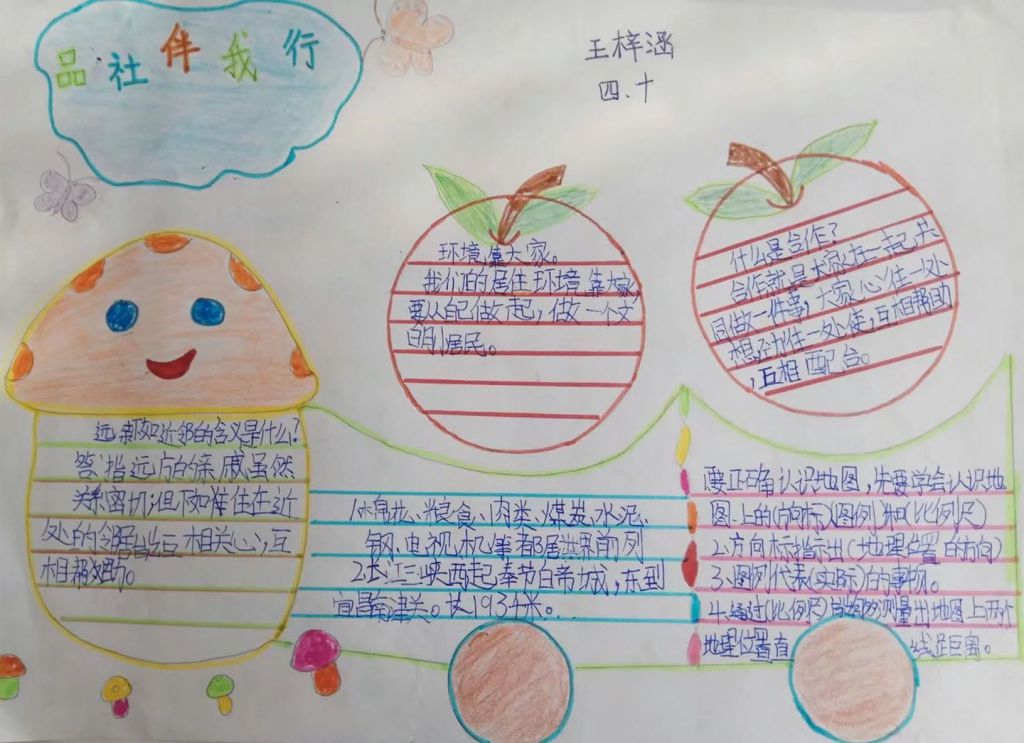 品社伴我行
王梓涵
四.十
环境靠大家。
我们的居住环境靠大家,
要从自己做起,做一个文
明居民。
什么是合作?
合作就是大家在一起,共
同做一件事,大家心往一处
想,劲往一处使,互相帮助
,互相配合。
远亲不如近邻的含义是什么?
答:指远方的亲戚虽然
关系密切;但不如住在近
处的邻居互相关心,互
相帮助。
1.棉花、粮食、肉类、煤炭、水泥、
钢、电视机等都居世界前列
2.长江三峡西起奉节白帝城,东到
宜昌南津关。长193千米。
要正确认识地图,先要学会认识地
图上的(方向标)(图例)和(比例尺)
2.方向标指示出(地理位置的方向)
3.图例代表(实际)的事物。
4.通过(比例尺)能够测量出地图上两个
地理位置直 线距离。